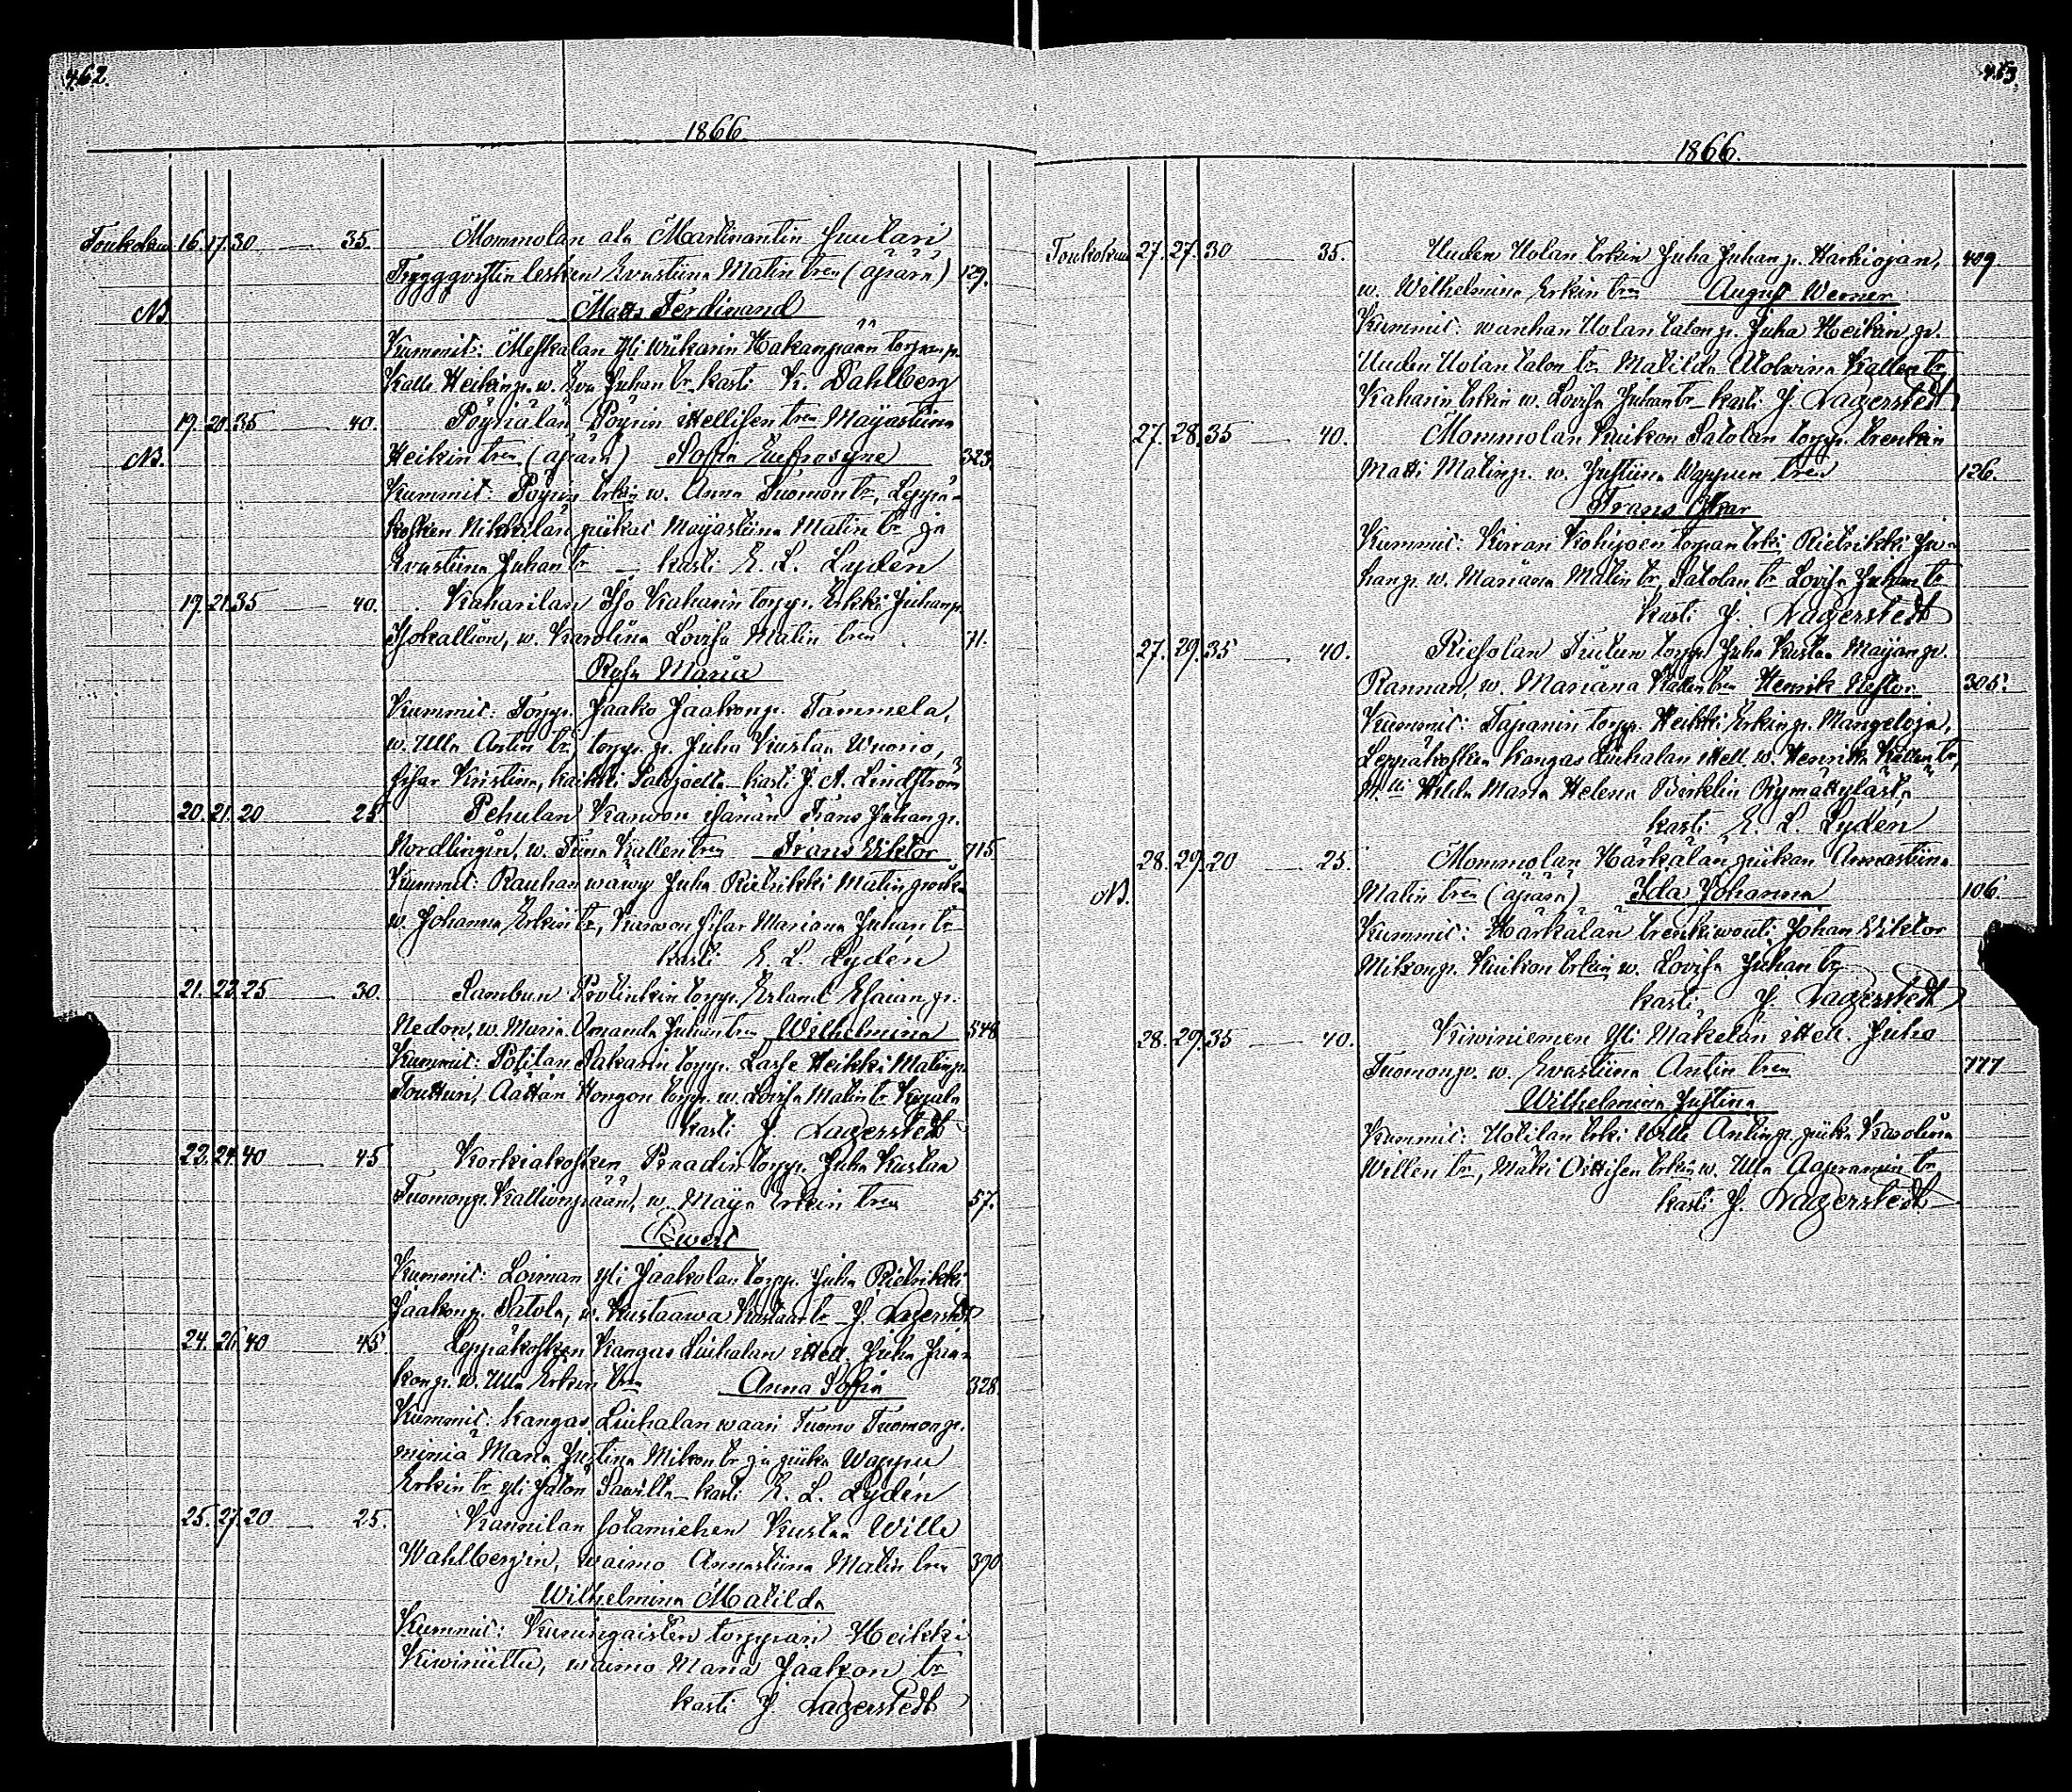 462.
1866
Toukokuu 16. 17. 30 35. Mommolan ala Martinantin Huilari
lesken Evastiina Matin tren (äpärä) 129.
NB Matts Ferdinand
Kummit: Meskalan yli Wiikarin Hakanpään torpanp.
Kalle Heikinp. w. Eva Juhan tr. kasti K. Dahlberg
19. 20. 35 40. Pöyriälän Pöyrin ittellisen tren Maijastiina
NB. Heikin tren (äpärä) Sofia Eufrosyne 323.
Kummit: Pöyrin trkin w. Anna Tuomon tr, Leppä-
kosken Nikkilän piikat Maijastiina Matin tr ja
Evastiina Juhan tr – kasti E. L. Lydén
19. 21. 35 40. Kaharilan Iso Kaharin torpp. Erkki Juhanp.
Isokallion, w. Karolina Lovisa Matin tren 71.
Rosa Maria
Kummit: Torpp. Jaako Jaakonp. Tammela,
w. Ulla Antin tr, torpp. p. Juha Kustaa Wuorio,
sisar Kristiina, kaikki Salojaelta – kasti J. A. Lindström
20. 21. 20 25 Pehulan Karwon isänän Frans Juhanp.
Nordlingin, w. Tiina Kallen tren Frans Wiktor 715
Kummit: Rauhan wäwy Juha Rietrikki Matinp
w. Johanna Erkin tr, Karwon sisar Mariana Juhan tr
kasti E. L. Lydén
21. 22. 25 30. Sambun Protinkin torpp. Erlant Esaian p.
Nedon, w. Maria Amanda Juhan tren Wilhelmina 548
Kummit: Potilan Sakarin torpp. Lasse Heikki Matinp.
Toutturi, Äättän Hongon torpp. w. Lovisa Matin tr
kasti J. Lagerstedt
23. 24. 40 45 Korkiakosken Praadin torpp. Juha Kustaa
Tuomonp. Kallionpään, w. Maija Erkin tren 57.
Ewert
Kummit: Loiman yli Jaakolan torpp. Juha Rietrikki
Jaakonp. Satola, w. Kustaawa Kustaan tr – J. Lagerstedt
24. 26. 40 45 Leppäkosken Kangas Liuhalan ittell. Juha Jaa-
konp. w. Ulla Erkin tren Anna Sofia 328.
Kummit: Kangas Liuhalan waari Tuomo Tuomonp.
miniä Maria Justina Mikon tr ja piika Wappu
Erkin tr yli Jalon Sawilla – kasti E. L. Lydén
25. 27. 20 25. Kannilan sotamiehen Kustaa Wille
Wahlbergin, waimo Annastiina Matin tren 390
Wilhelmina Matilda
Kummit: Kuningaisten torppari Heikki
Kiwiniittu, waimo Maria Jaakon tr
kasti J. Lagerstedt
463.
1866.
Toukokuu 27. 27. 30 35. Uuden Uolan trkin Juha Juhanp. Harkiojan, 409
w. Wilhelmina Erkin tren August Werner
Kummit: wanhan Uolan talon p. Juha Heikin p.
Uuden Uolan talon tr Matilda Kallen tr
Kaharin trkin w. Lovisa Juhan tr – kasti J. Lagerstedt
27. 28. 35 40. Mommolan Kuikon Satolan torpp. trenkin
Matti Matinp. w. Justiina Wappun tren 126.
Frans Oskar
Kummit: Kirran Kohijoen torpan trki Rietrikki Ju-
hanp. w. Mariana Matin tr, Satolan tr Lovisa Juhan tr
kasti J. Lagerstedt
27. 29. 35 40. Rietolan Trulun torpp. Juha Kustaa Maijanp.
Rannan, w. Mariana Kallen tren Henrik Nestor 305.
Kummit: Tapanin torpp. Heikki Erkinp. Mangeloja,
Leppäkosken Kangas Liuhalan ittell. w. Henrika Kallen tr,
M:lli Hilda Maria Helena Birklin Rymättylästä
kasti E. L. Lydén
28. 29. 20 25. Mommolan Härkälän piikan Annastiina
NB. Matin tren (äpärä) Ida Johanna 106.
Kummit: Härkälän trenkiwouti Johan Wiktor
Mikonp. Kuikon trkin w. Lovisa Juhan tr
kasti J. Lagerstedt
28. 29. 35 40. Kiwiniemen yli Mäkelän ittell. Juho
Tuomonp. w. Evastiina Antin tren 777
Wilhelmina Justina
Kummit: Uotilan trki Wille Antinp. piika Karolina
Willen tr, Mäki Oittisen trkin w. Ulla Aapramin tr
kasti J. Lagerstedt